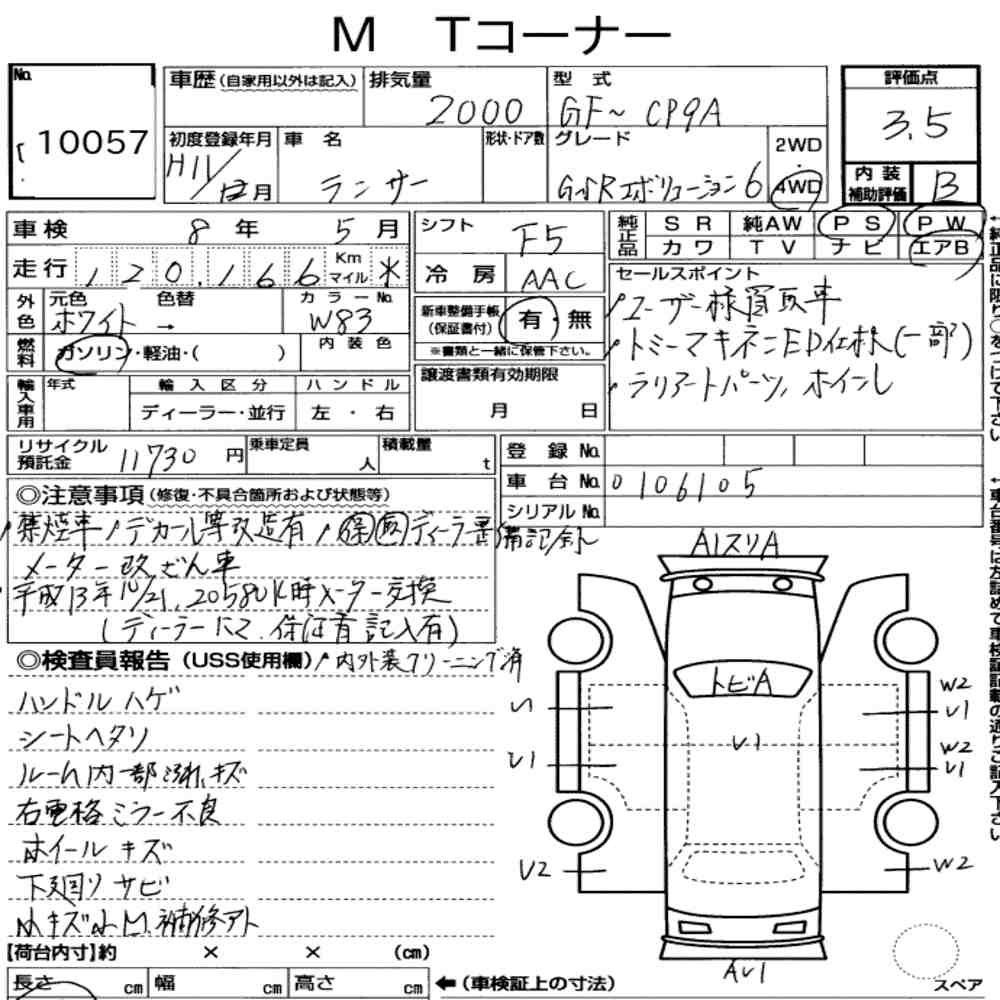 M Tコーナー
No. 10057
車歴(自家用以外は記入) 排気量 2000 型式 GF~ CP9A 評価点 3.5
初度登録年月 H11/12月 車名 ランサー 形状・ドア数 グレード GSRエボリューション6 2WD・4WD 内装補助評価 B
車検 8年 5月 シフト F5 純正品 SR 純AW PS PW
カワ TV ナビ エアB
走行 120,166 Kmマイル * 冷房 AAC
外色 元色 ホワイト 色替 → カラーNo. W83 新車整備手帳(保証書付) 有・無
※書類と一緒に保管下さい。
燃料 ガソリン・軽油・( ) 内装色
セールスポイント
ユーザー様買取車
トミーマキネンED仕様(一部)
ラリアートパーツ、ホイール
輸入車用 年式 輸入区分 ディーラー・並行 ハンドル 左・右
譲渡書類有効期限 月 日
リサイクル預託金 11730円 乗車定員 人 積載量 t
登録No.
車台No. 0106105
シリアルNo.
◎注意事項(修復・不具合箇所および状態等)
禁煙車/デカール等改造有/保 ディーラー整備記録
メーター改ざん車
平成13年10/21、20580K時メーター交換
(ディーラーにて、保証書記入有)
◎検査員報告(USS使用欄)/内外装クリーニング済
ハンドルハゲ
シートヘタリ
ルーム内一部汚れ、キズ
右電格ミラー不良
ホイールキズ
下廻りサビ
小キズ小凹、補修アト
A1スリA
トビA
U1
U1
U1
U2
W2
U1
W2
U1
W2
AU1
スペア
【荷台内寸】約 × × (cm)
長さ cm 幅 cm 高さ cm ←(車検証上の寸法)
↑純正品に限り○をつけて下さい
↑車台番号は左詰めで車検証記載の通りご記入下さい